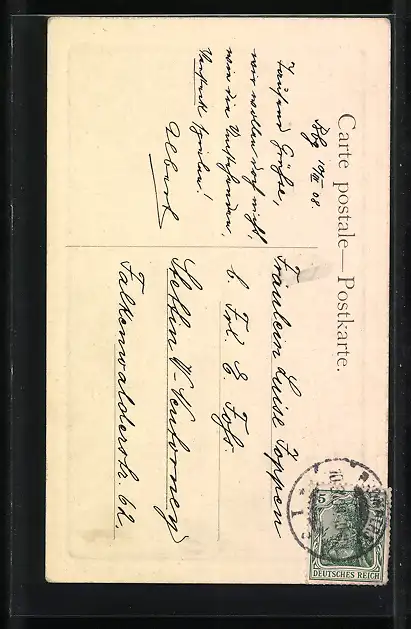 Carte postale — Postkarte.
Bbg 10/III 08.
Tausend Grüße,
wir wollen doch nicht,
wie die
spielen!
Albert
Fräulein Luise Joppen
b. Frl. E.
Stettin W-Neutorney
Falkenwalderstr. 62,
5
DEUTSCHES REICH